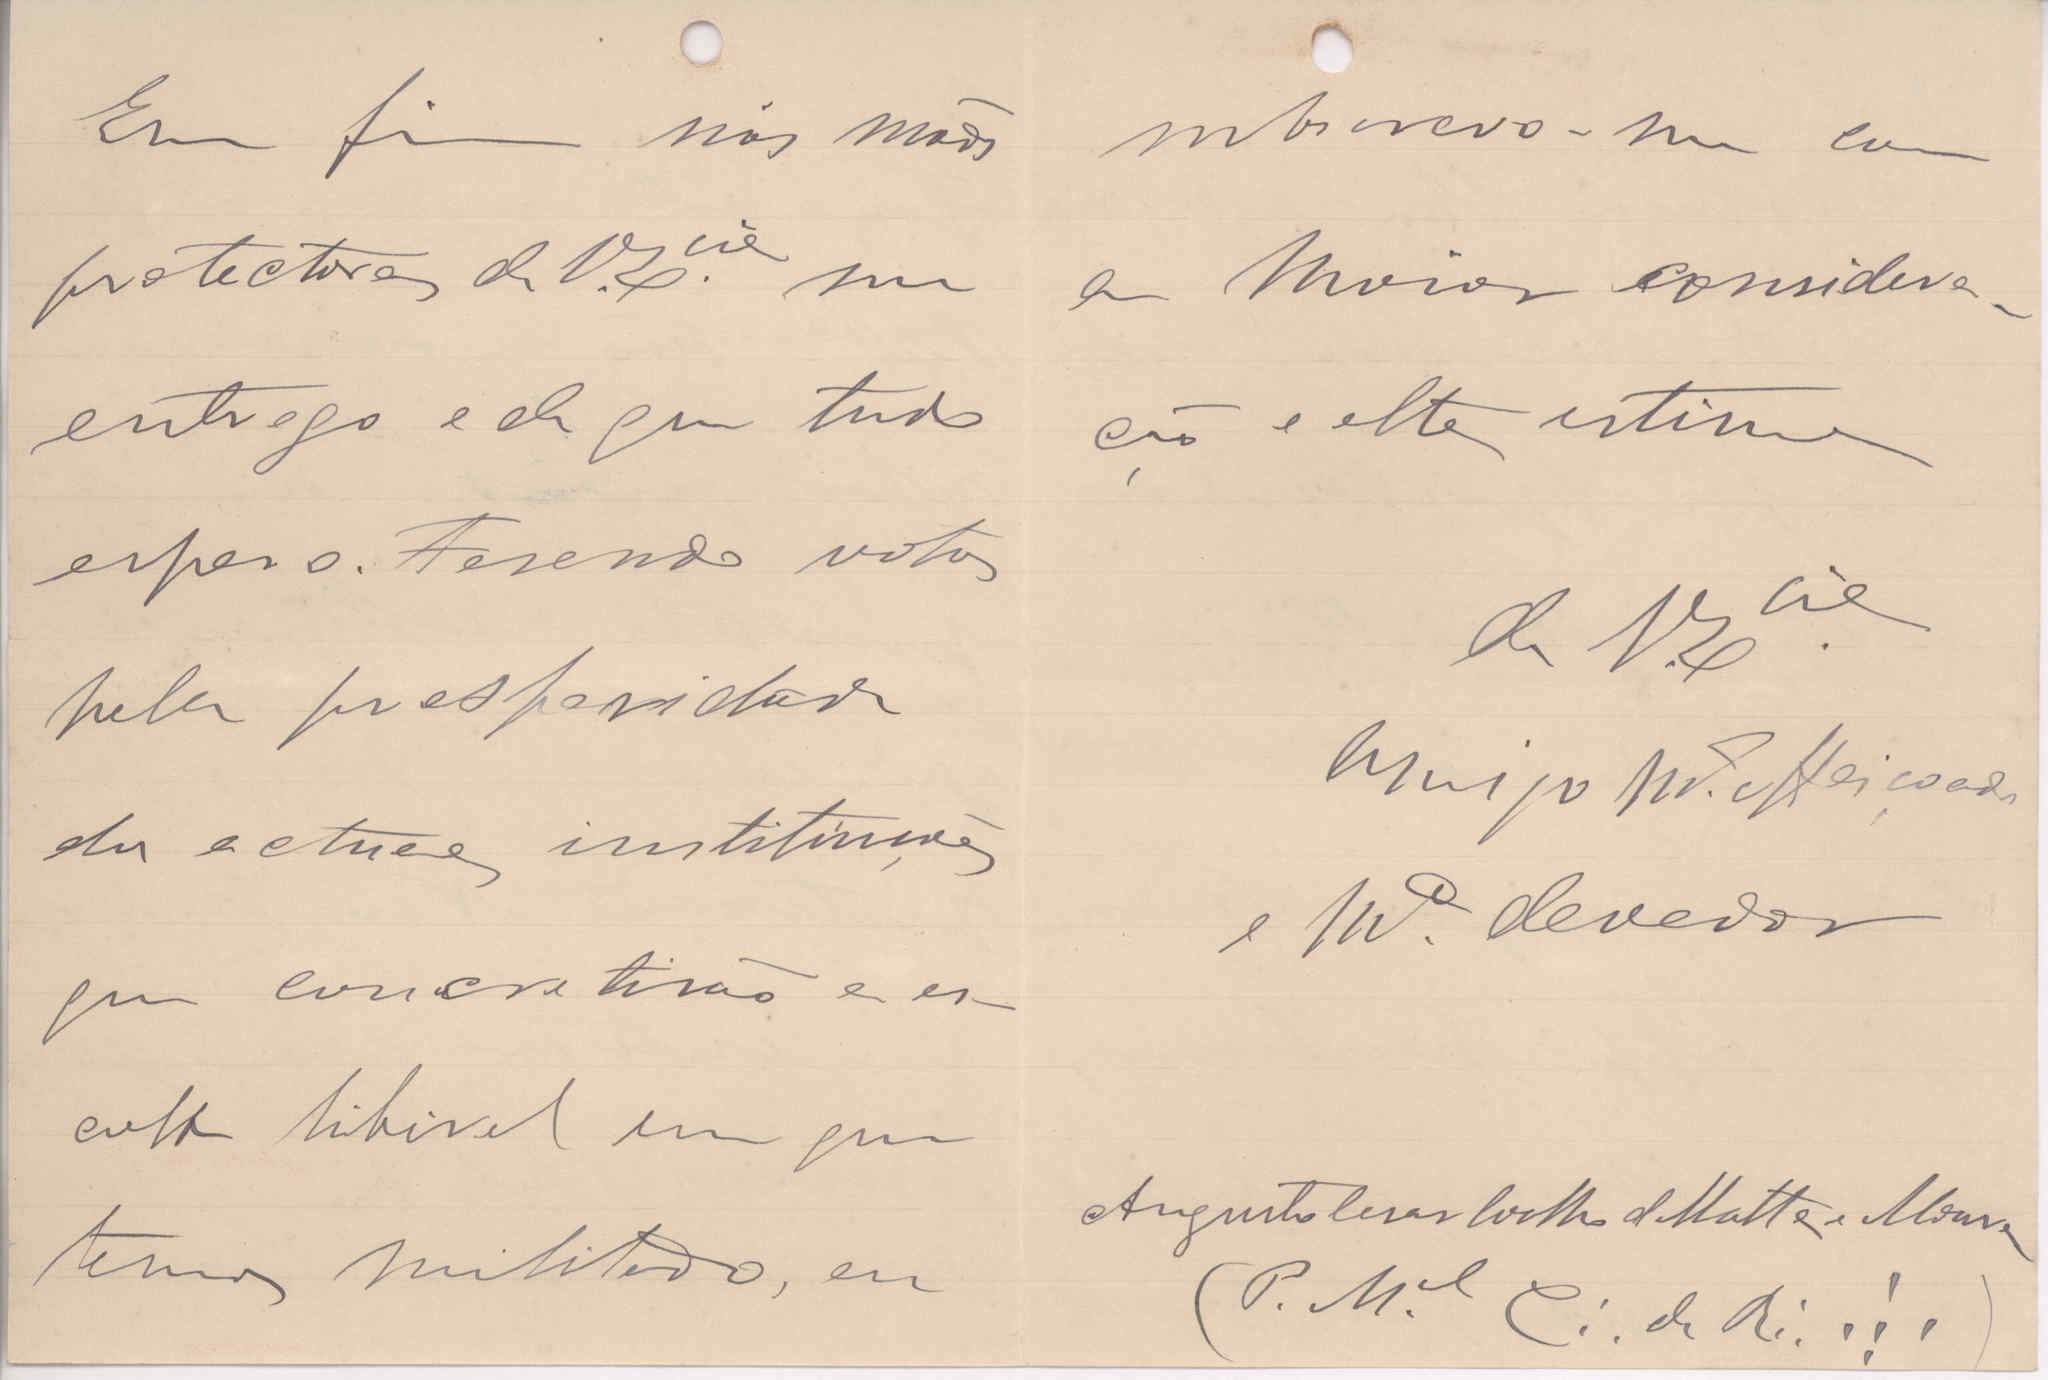 Em fim nas mãos
protectoras de V. Ex.cia me
entrego e de que tudo
espero. Fasendo votos
pela prosperidade
das actuaes instituições
que concretisão a es-
colla liberal em que
temos militado, eu
subscrevo-me com
a Maior considera-
ção e alta estima
de V. Ex.cia
Amigo M.to Affeiçoado
e M.to devedor
Augusto Cesar Coelho de Motta e Moura
(P. M.el Ci. de Ri. !!!)